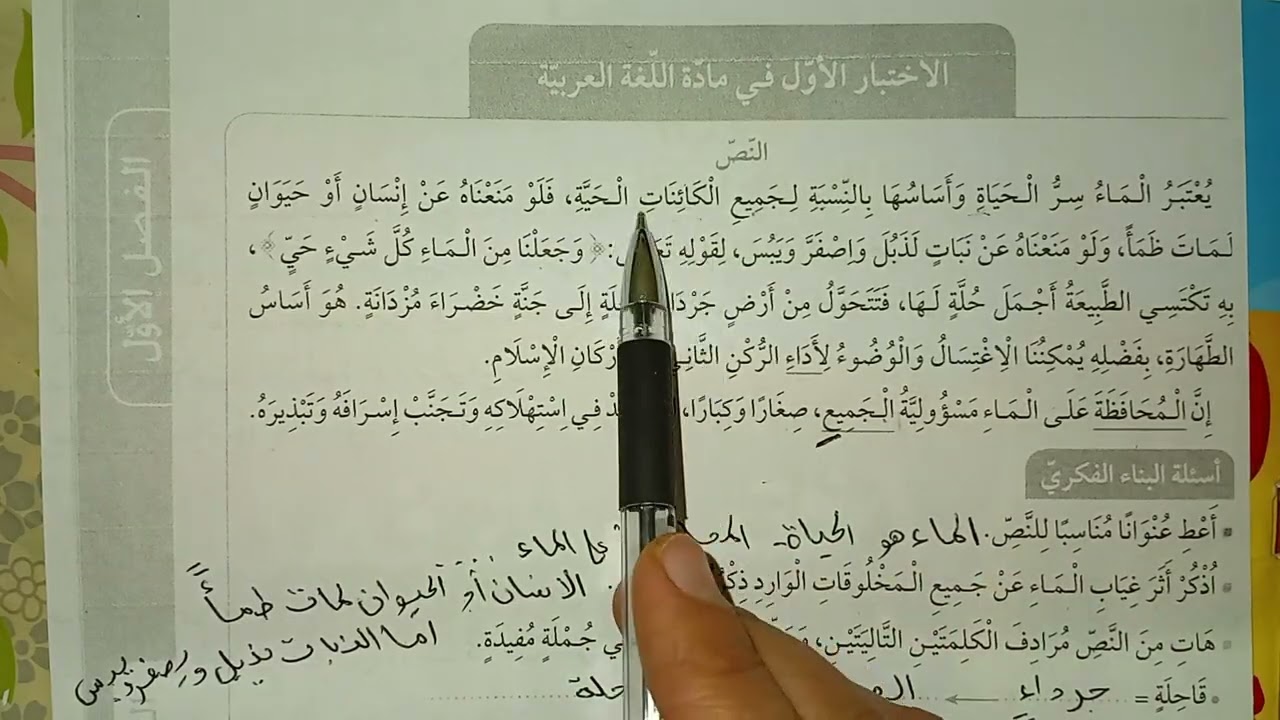 الاختبار الأوّل في مادّة اللّغة العربيّة
الفصل الأوّل
النّصّ
يُعْتَبَرُ الْمَاءُ سِرُّ الْحَيَاةِ وَأَسَاسُهَا بِالنِّسْبَةِ لِجَمِيعِ الْكَائِنَاتِ الْحَيَّةِ، فَلَوْ مَنَعْنَاهُ عَنْ إِنْسَانٍ أَوْ حَيَوَانٍ
لَمَاتَ ظَمَأً، وَلَوْ مَنَعْنَاهُ عَنْ نَبَاتٍ لَذَبُلَ وَاِصْفَرَّ وَيَبُسَ، لِقَوْلِهِ :﴿ وَجَعَلْنَا مِنَ الْمَاءِ كُلَّ شَيْءٍ حَيٍّ ﴾،
بِهِ تَكْتَسِي الطَّبِيعَةُ أَجْمَلَ حُلَّةٍ لَهَا، فَتَتَحَوَّلُ مِنْ أَرْضٍ إِلَى جَنَّةٍ خَضْرَاءَ مُزْدَانَةٍ. هُوَ أَسَاسُ
الطَّهَارَةِ، بِفَضْلِهِ يُمْكِنُنَا الِاغْتِسَالُ وَالْوُضُوءُ لِأَدَاءِ الرُّكْنِ أَرْكَانِ الْإِسْلَامِ.
إِنَّ الْمُحَافَظَةَ عَلَى الْمَاءِ مَسْؤُولِيَّةُ الْجَمِيعِ، صِغَارًا وَكِبَارًا، فِي اِسْتِهْلَاكِهِ وَتَجَنَّبْ إِسْرَافَهُ وَتَبْذِيرَهُ.
أسئلة البناء الفكريّ
▪ أَعْطِ عُنْوَانًا مُنَاسِبًا لِلنَّصِّ. الماء هو الحياة - على الماء
▪ اُذْكُرْ أَثَرَ غِيَابِ الْمَاءِ عَنْ جَمِيعِ الْمَخْلُوقَاتِ الْوَارِدِ . الانسان أو الحيوان لمات ظمأً
▪ هَاتِ مِنَ النَّصِّ مُرَادِفَ الْكَلِمَتَيْنِ التَّالِيَتَيْنِ، فِي جُمْلَةٍ مُفِيدَةٍ. اما النبات يذبل و يصفر
▪ قَاحِلَةٍ = جرداءٍ